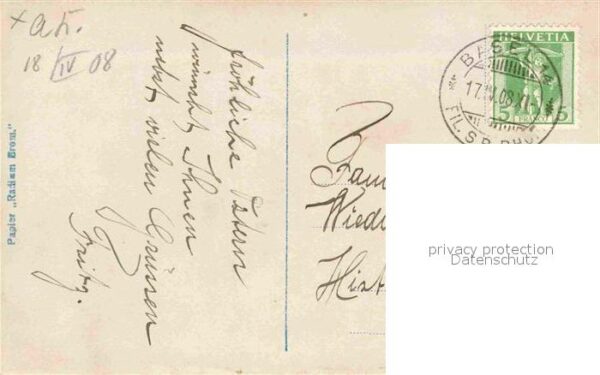 + a. k.
18/IV 08
Papier „Radium Brom."
fröhliche Ostern
wünscht Ihnen
nebst vielen Grüssen
Fritz.
HELVETIA
5 5
FRANCO
BASEL 4
17.IV.08.XI-
FIL. S.B.B.HOF
Fam
Wiede
Hist
privacy protection
Datenschutz